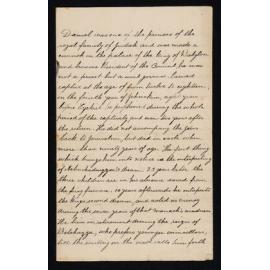 Daniel was one of the princes of the
royal family of Judah and was made a
eunuch in the palace of the king of Babylon
and became President of the
not a priest but a civil governor. Carried
captive at the age of from twelve to eighteen,
in the fourth year of Jehoiakim, age years
before Ezekiel, is prophesied during the whole
period of the captivity and even two years after
the return. He did not accompany the Jews
back to Jerusalem, but died in exile when
more than ninety years of age. The first thing
which brought him into notice is the interpreting
of Nebuchadnezzar's dream. 23 years later the
three children are in his absence saved from
the fiery furnace. 10 years afterwards he interprets
the king's second dream, and acted as viceroy
during the seven years of that monarch's madness.
He lives in retirement during the reign of
Belshazzar, who prefers younger counsellors,
till the writing on the wall calls him forth